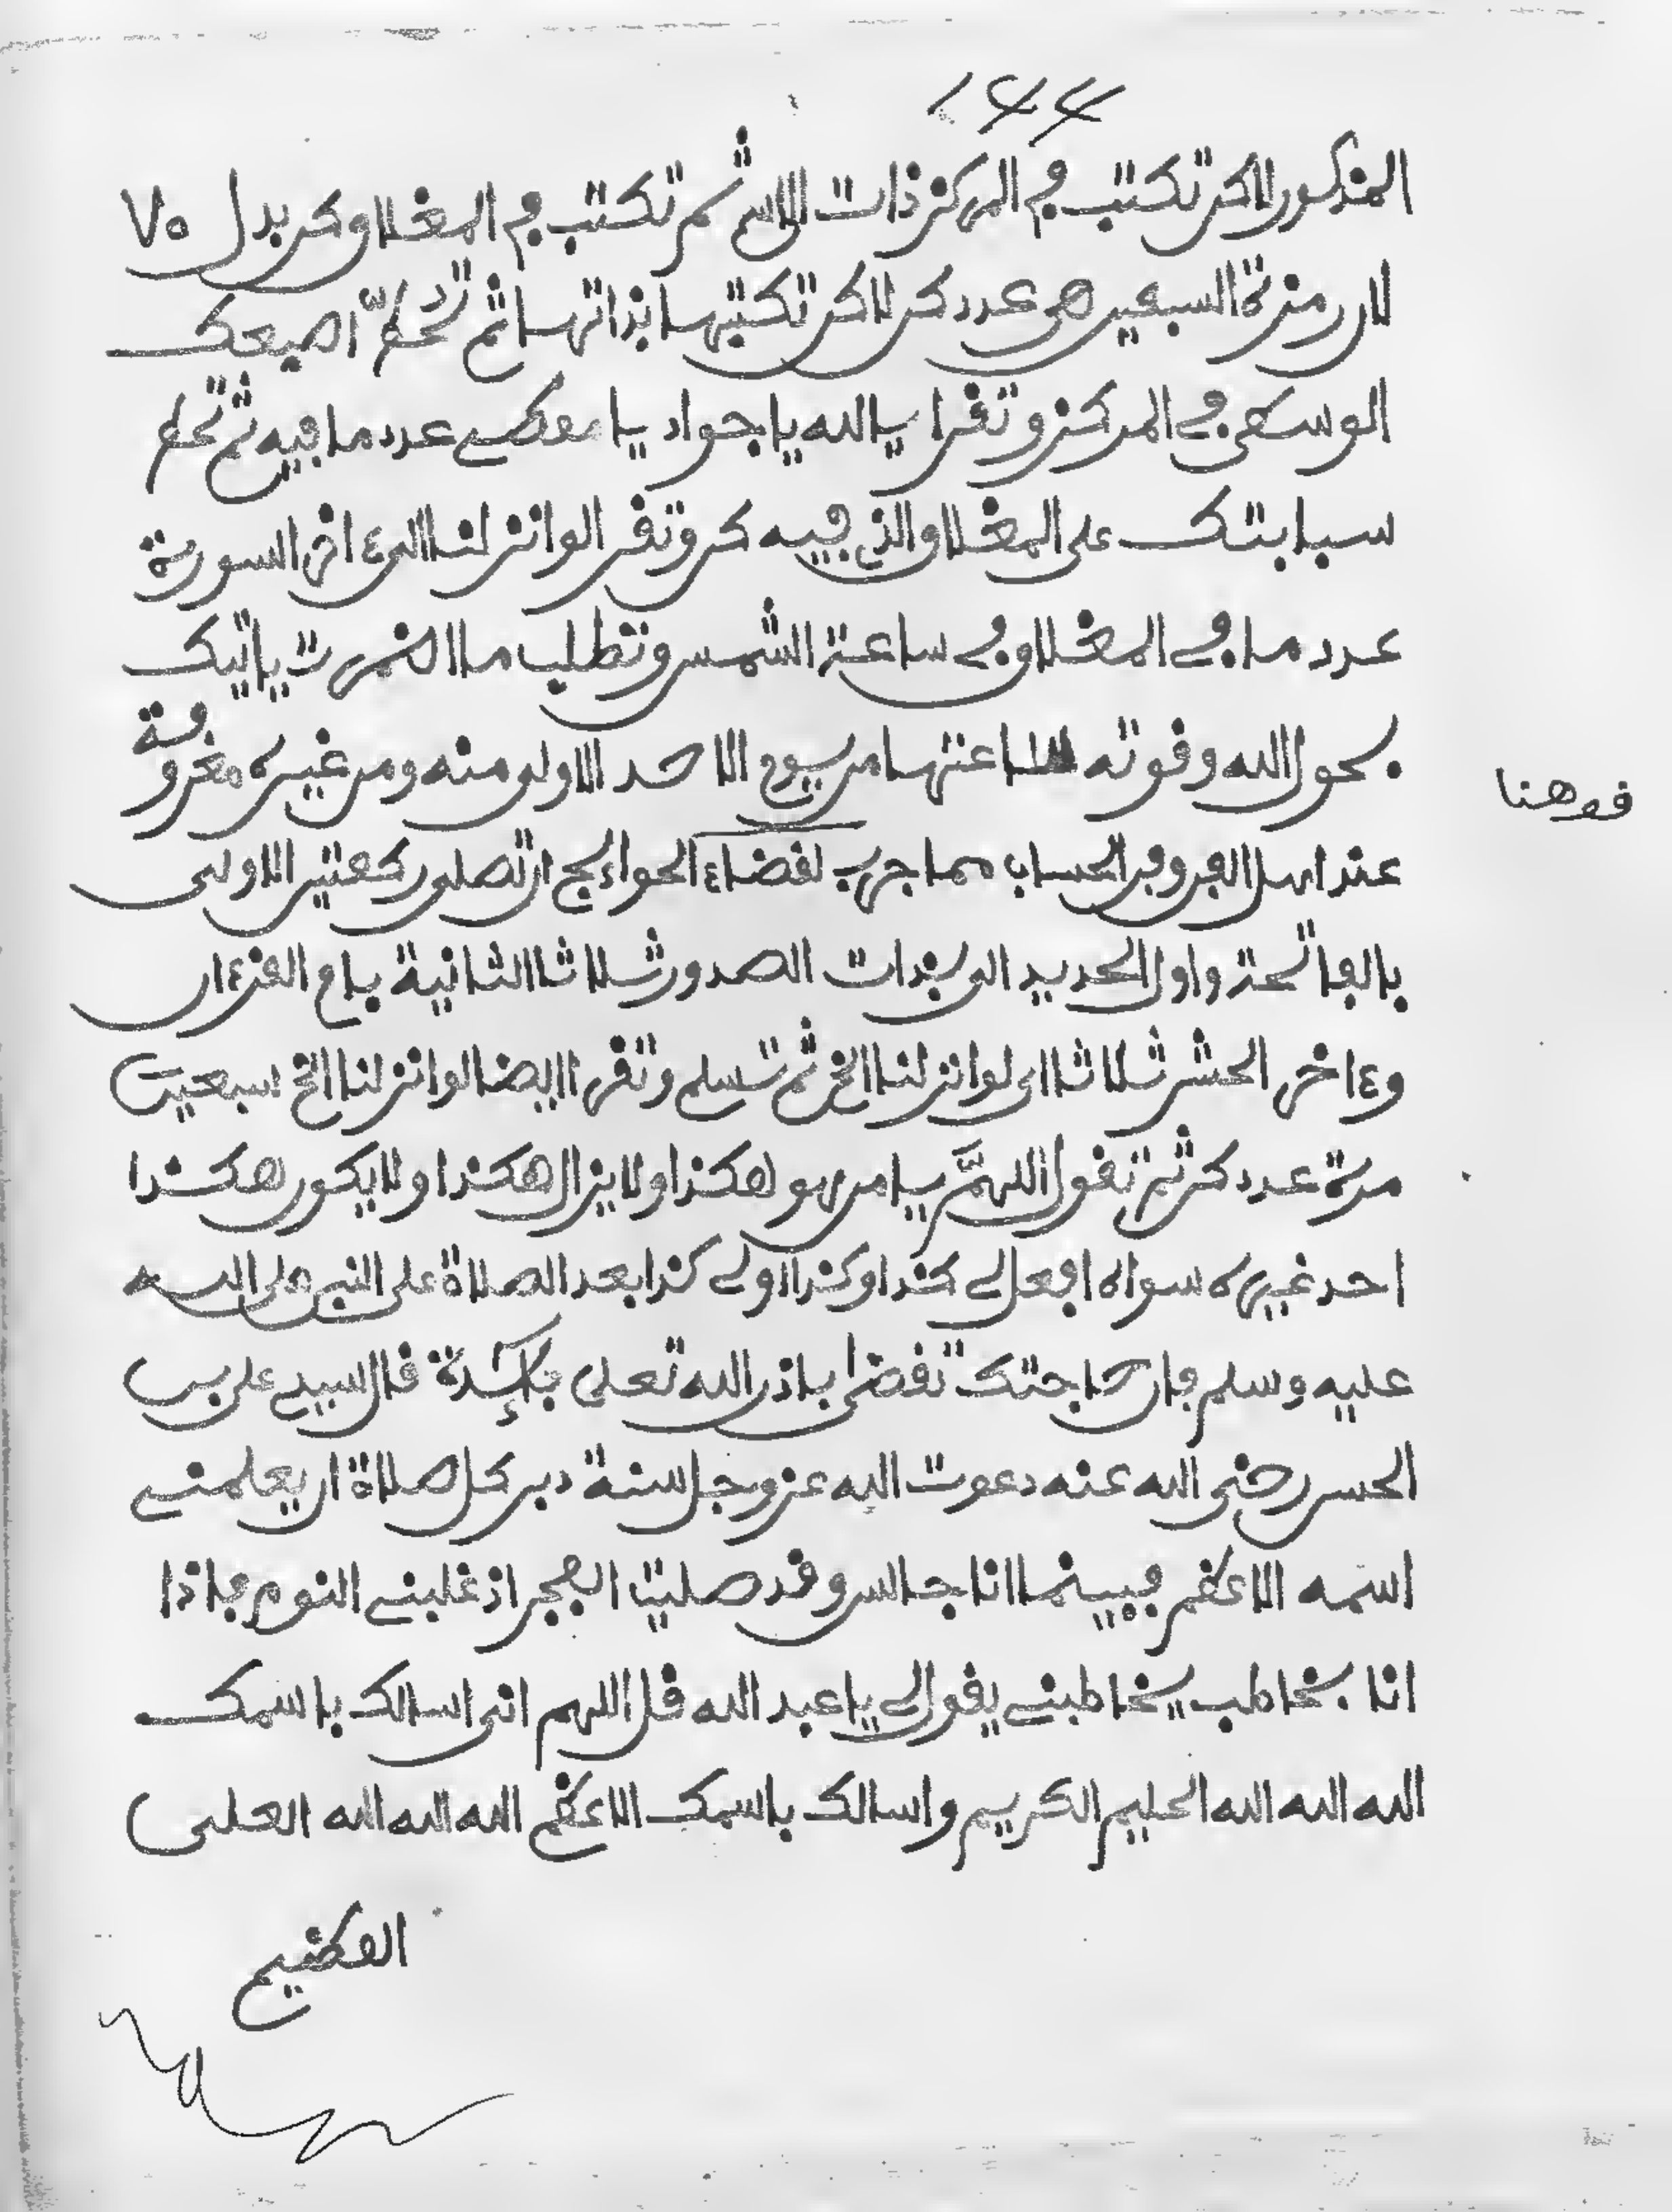 ١٤٤
المذكور لاكن تكتب في المركز ذات الاسم ثم تكتب في المغلاو كن بدل ٧٥
لان رمزة السبعين هي عدد كن لاكن تكتبها بذاتها ثم تحط اصبعك
الوسطى في المركز وتقرا يالله ياجواد يا معطي عدد ما فيه ثم تحط
سبابتك على المغلاو الذي فيه كن وتقرا لو انزلنا الى ءاخر السورة
عدد ما في المغلاو في ساعة الشمس وتطلب ما اضمرت ياتيك
بحول الله وقوته ساعتها من يوم الاحد الاولى منه ومن غيره معروفة
قوهنا
عند اهل الفن وفن الحساب مما جرب لقضاء الحوائج ان تصلي ركعتين الاولى
بالفاتحة واول الحديد الى بذات الصدور ثلاثا الثانية بام القرءان
وءاخر الحشر ثلاثا الى لو انزلنا الخ ثم تسلم وتقرا ايضا لو انزلنا الخ سبعين
مرة عدد كن ثم تقول اللهم يا من هو هكذا ولا يزال هكذا ولا يكون هكذا
احد غيره سواه افعل لي كذا وكذا او لي كذا بعد الصلاة على النبي صلى الله
عليه وسلم فان حاجتك تقضى باذن الله تعلى فائدة قال سيدي علي بن
الحسن رضي الله عنه دعوت الله عز وجل سنة دبر كل صلاة ان يعلمني
اسمه الاعظم فبينما انا جالس وقد صليت الفجر اذ غلبني النوم فاذا
انا بخاطب يخاطبني يقول لي ياعبد الله قل اللهم اني اسالك باسمك
الله الله الله الحليم الكريم واسالك باسمك الاعظم الله الله الله العلي
العظيم